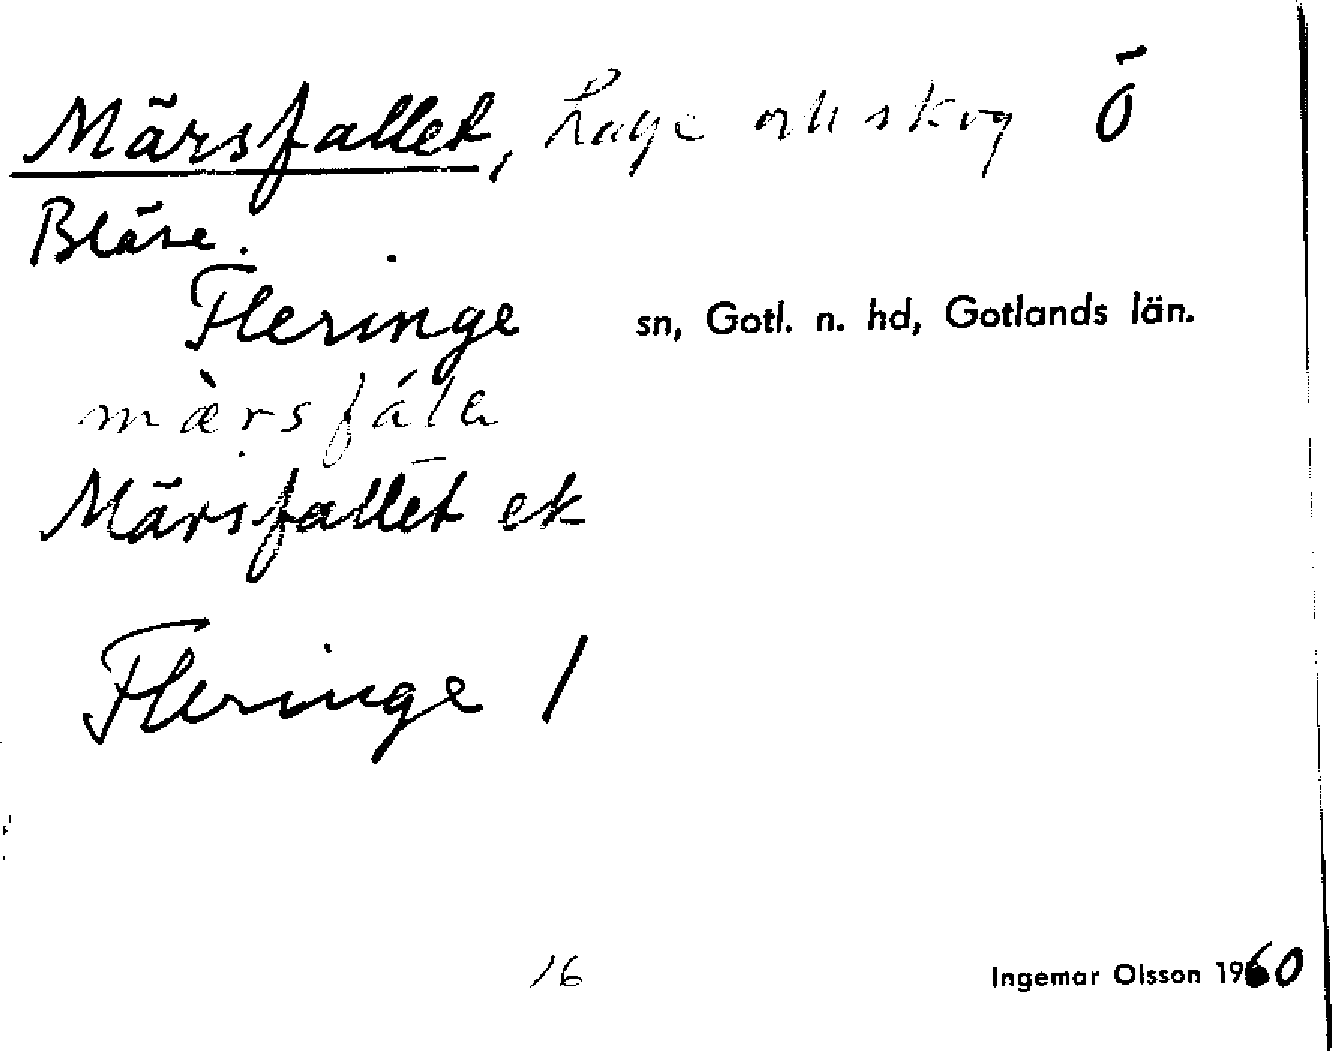 Märsfallet, hage och skog Ö
Bläse.
Fleringe sn, Gotl. n. hd, Gotlands län.
mæ̀rsfála
Märsfallet ek
Fleringe 1
16
Ingemar Olsson 1960